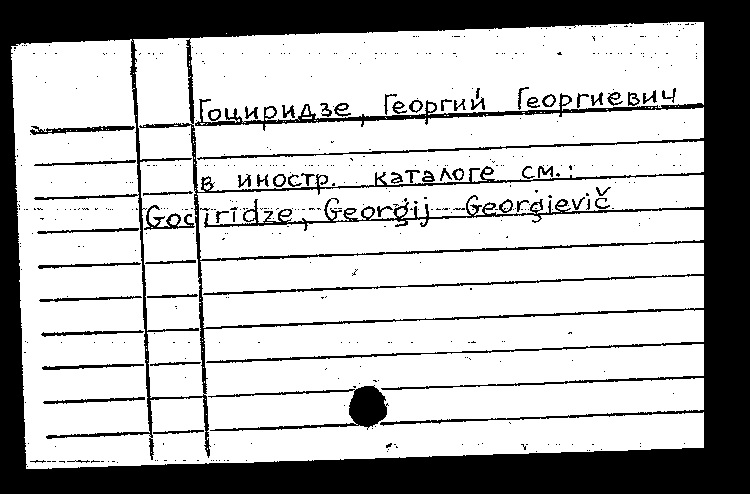 Гоциридзе, Георгий Георгиевич
в иностр. каталоге см.:
Gociridze, Georgij Georgievič